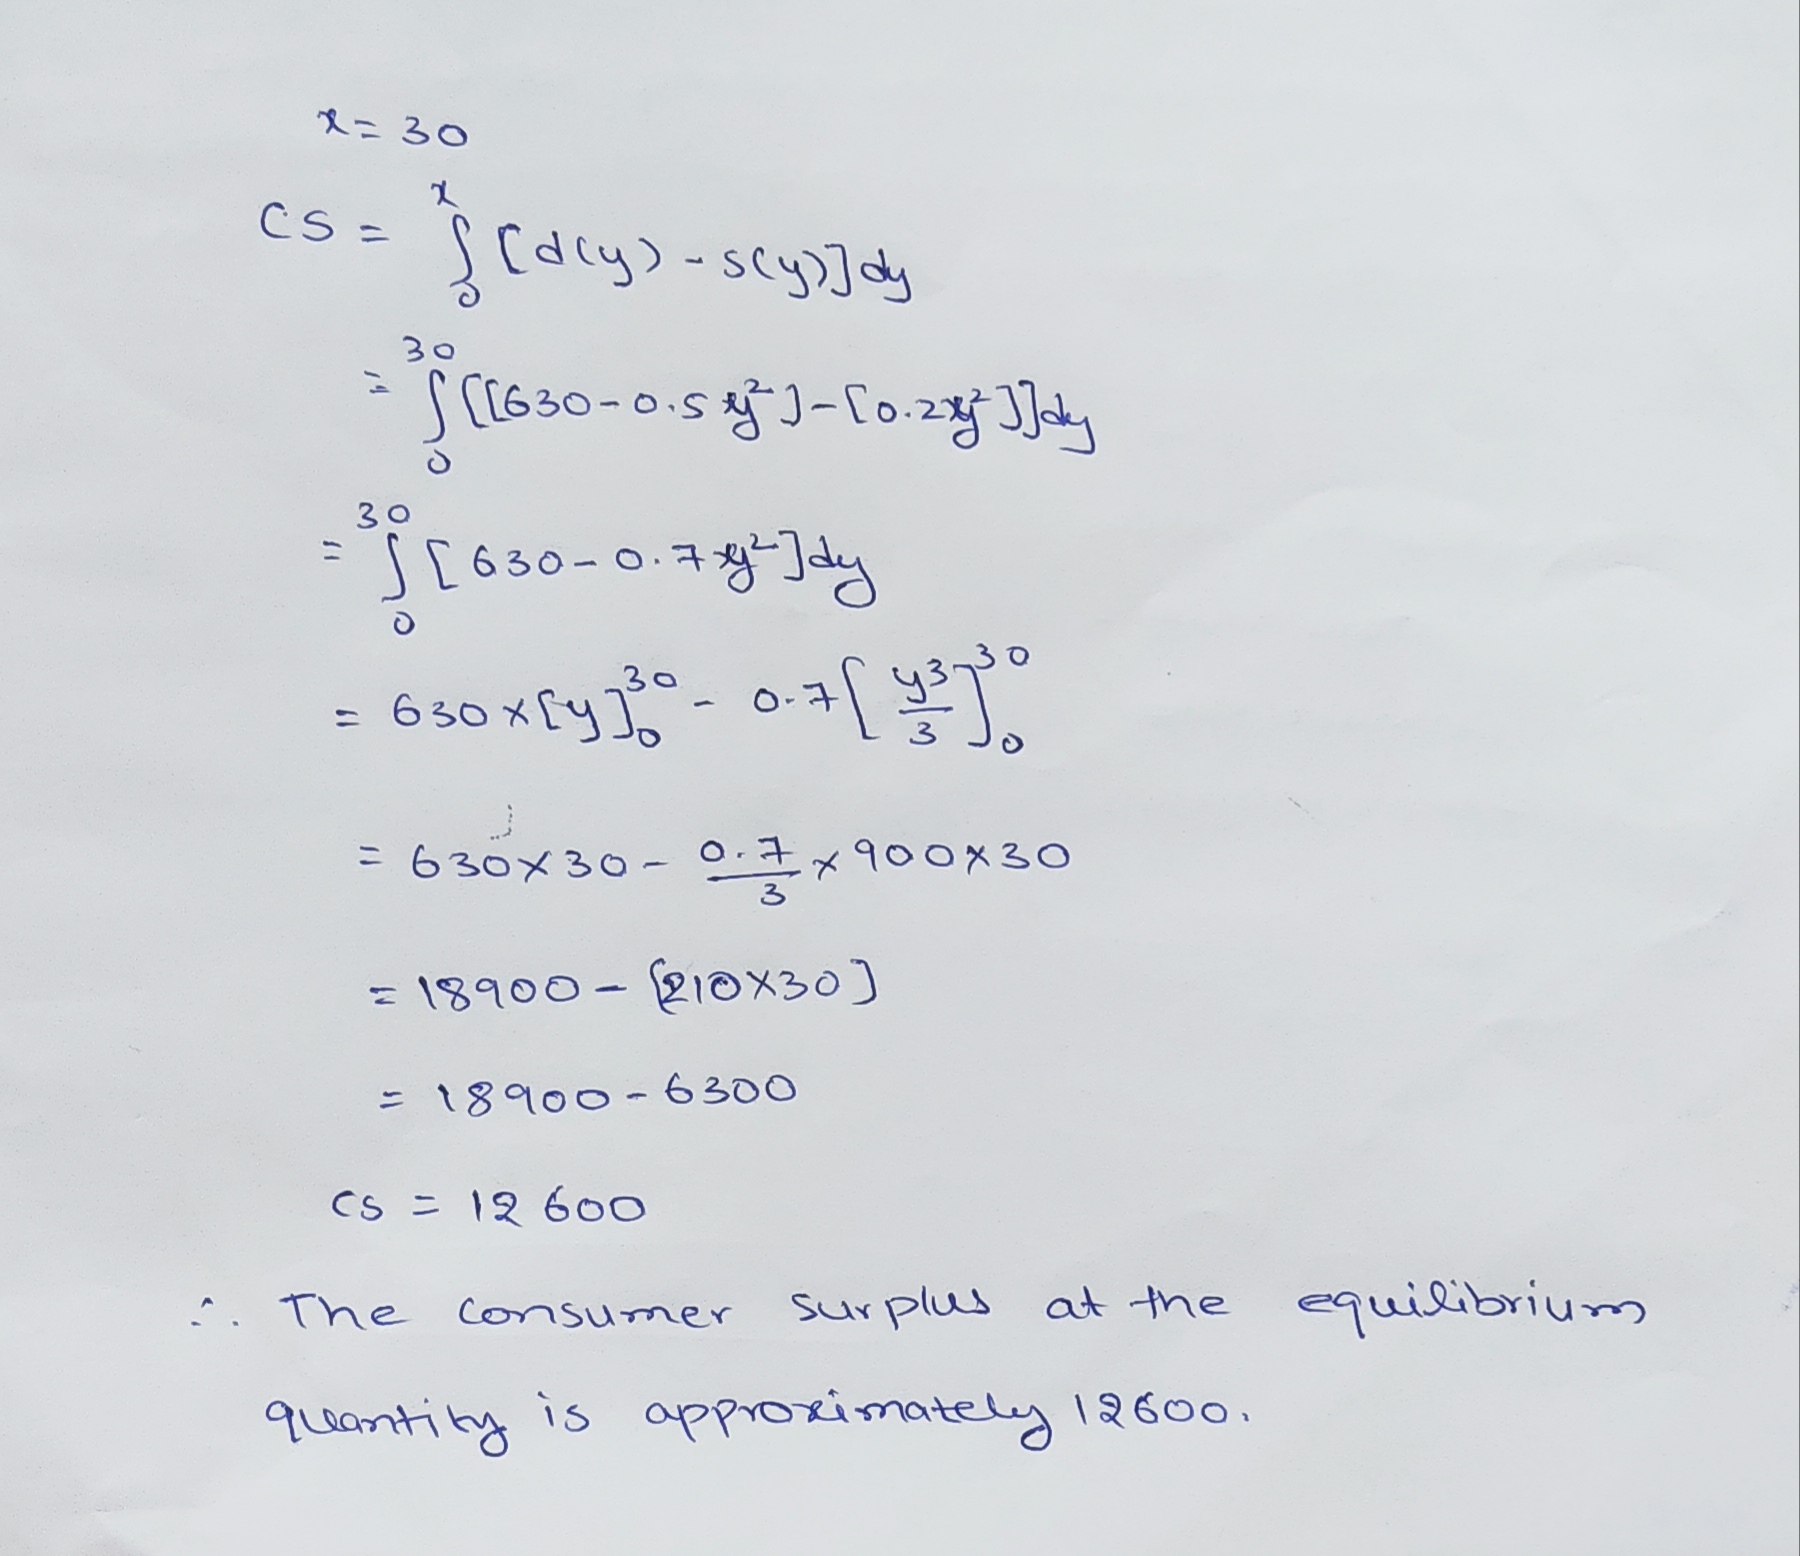 x = 30
CS = ∫₀ˣ [d(y) - s(y)] dy
= ∫₀³⁰ [[630 - 0.5 y²] - [0.2 y²]] dy
= ∫₀³⁰ [630 - 0.7 y²] dy
= 630 × [y]₀³⁰ - 0.7 [y³/3]₀³⁰
= 630 × 30 - 0.7/3 × 900 × 30
= 18900 - [210 × 30]
= 18900 - 6300
CS = 12600
∴ The consumer surplus at the equilibrium
quantity is approximately 12600.